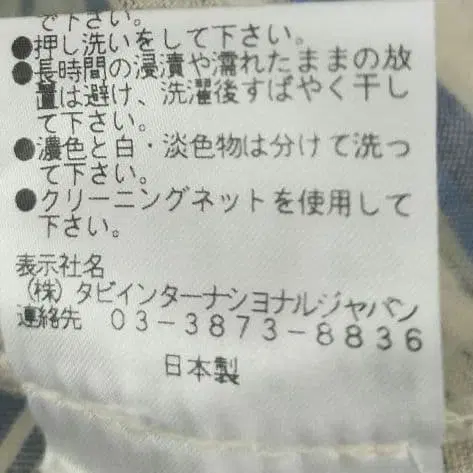 で下さい。
●押し洗いをして下さい。
●長時間の浸漬や濡れたままの放
置は避け、洗濯後すばやく干し
て下さい。
●濃色と白・淡色物は分けて洗っ
て下さい。
●クリーニングネットを使用して
下さい。
表示社名
(株)タビインターナショナルジャパン
連絡先 03-3873-8836
日本製